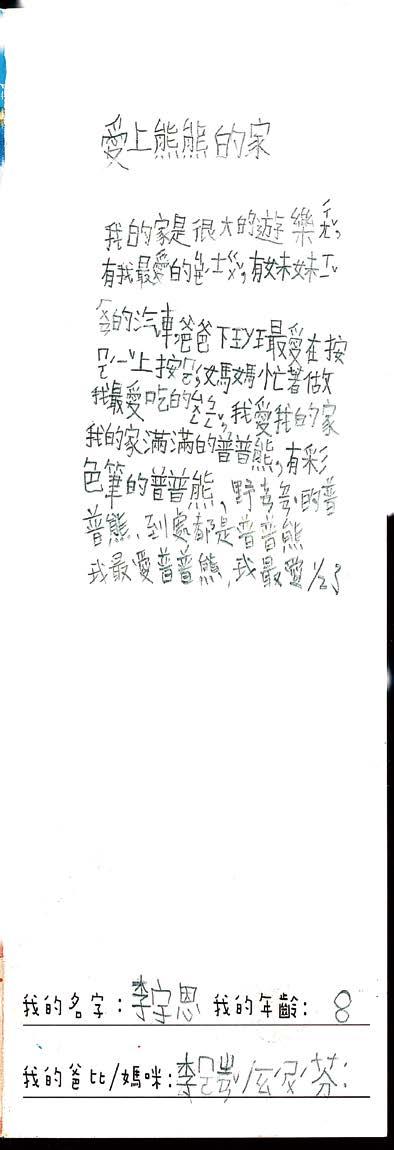 愛上熊熊的家
我的家是很大的遊樂
有我最愛的巴士,有妹妹
的汽車,爸爸下班最愛在按
上按,媽媽忙著做
我最愛吃的,我愛我的家
我的家滿滿的普普熊,有彩
色筆的普普熊,野的普
普熊、到處都是普普熊
我最愛普普熊,我最愛
我的名字:李宇恩 我的年齡: 8
我的爸比/媽咪:李 / 芬